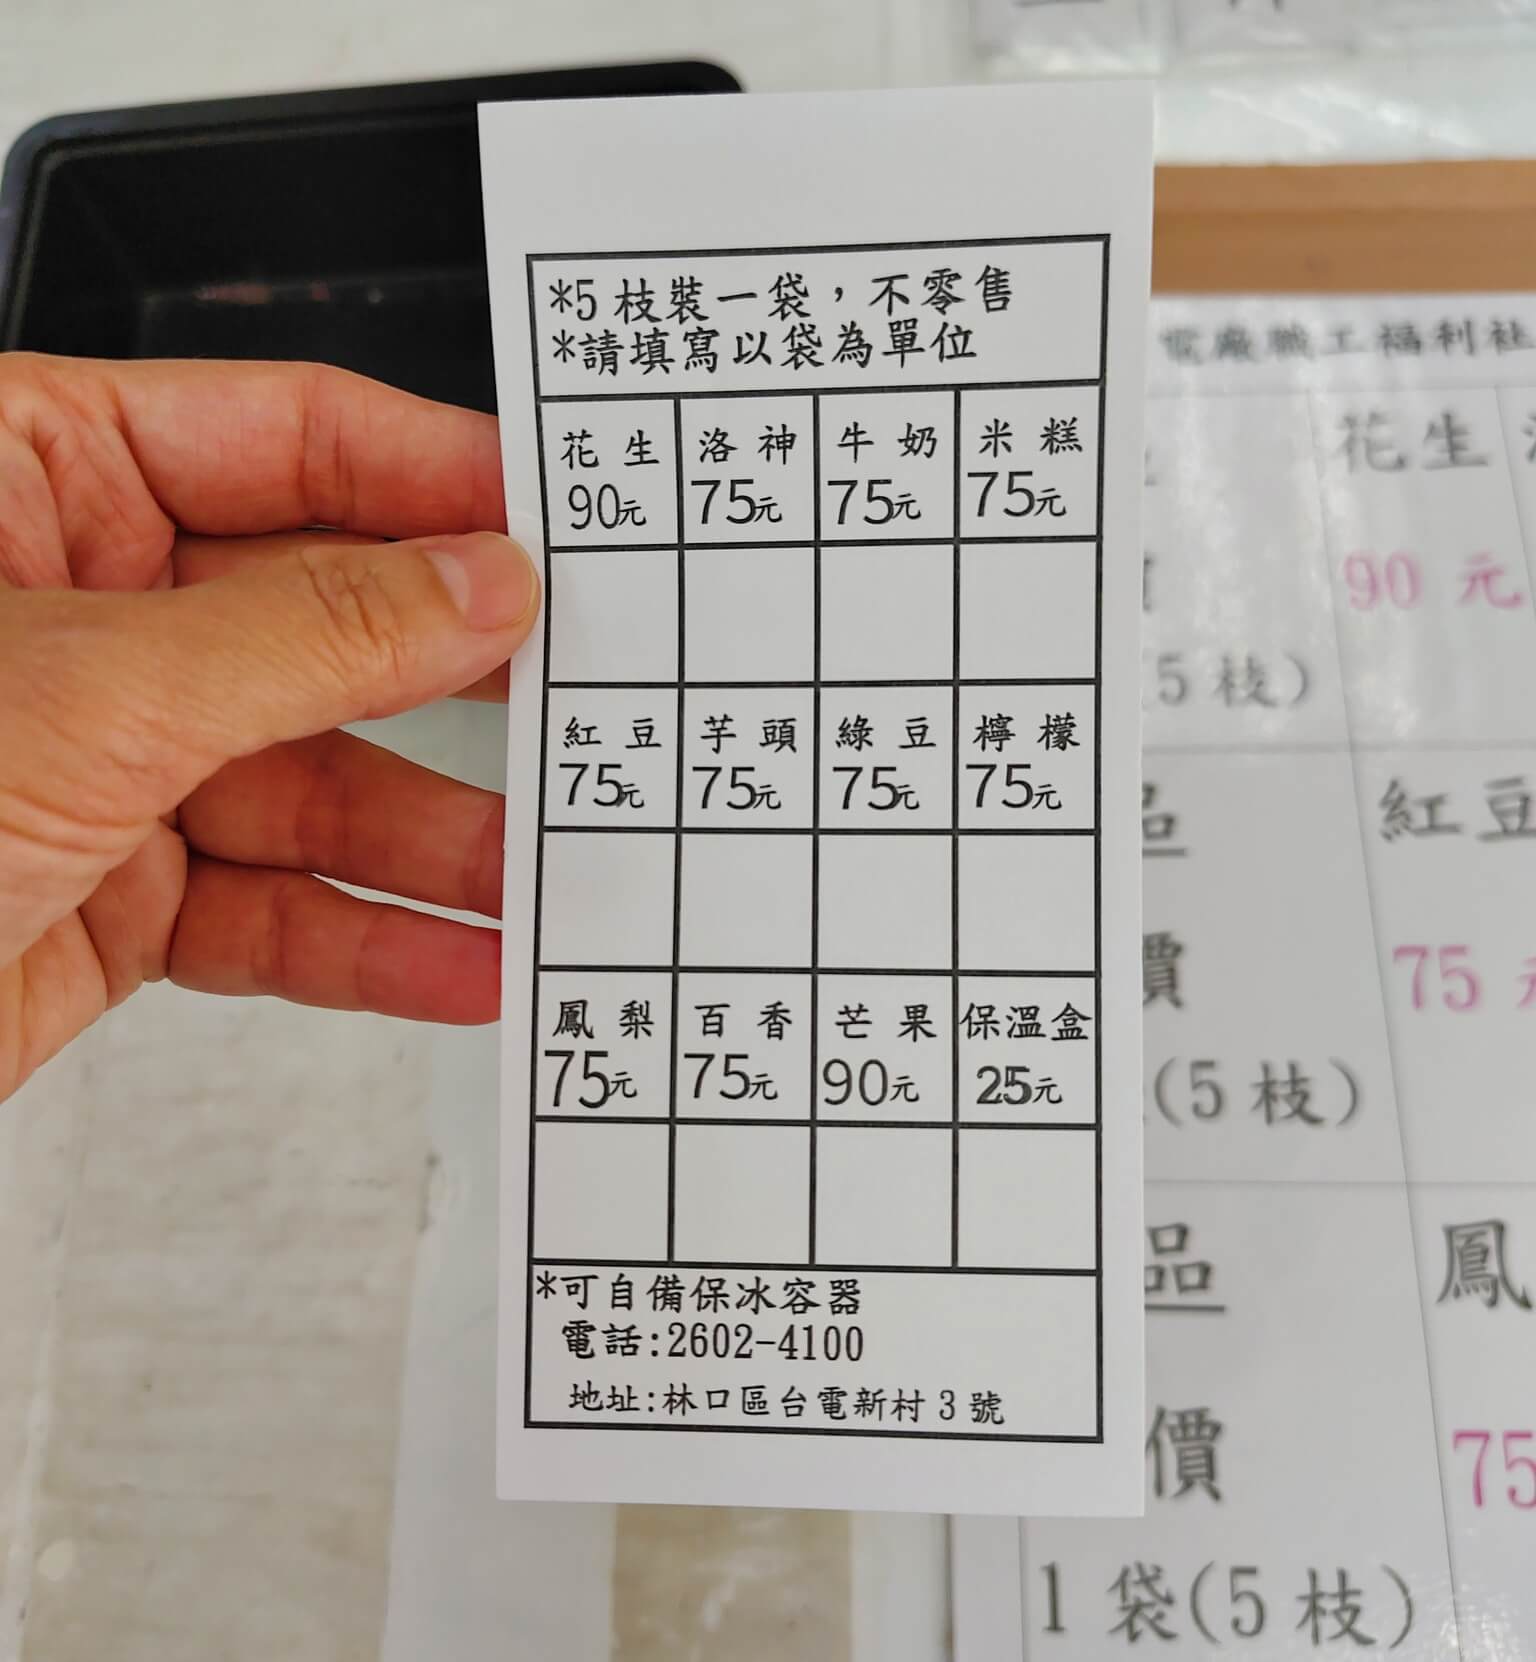 *5 枝裝一袋，不零售
*請填寫以袋為單位
花生 洛神 牛奶 米糕
90元 75元 75元 75元
紅豆 芋頭 綠豆 檸檬
75元 75元 75元 75元
鳳梨 百香 芒果 保溫盒
75元 75元 90元 25元
*可自備保冰容器
電話:2602-4100
地址:林口區台電新村 3 號
電廠職工福利社
花生
90 元
5 枝)
品 紅豆
價 75
(5 枝)
品 鳳
價 75
1 袋(5 枝)